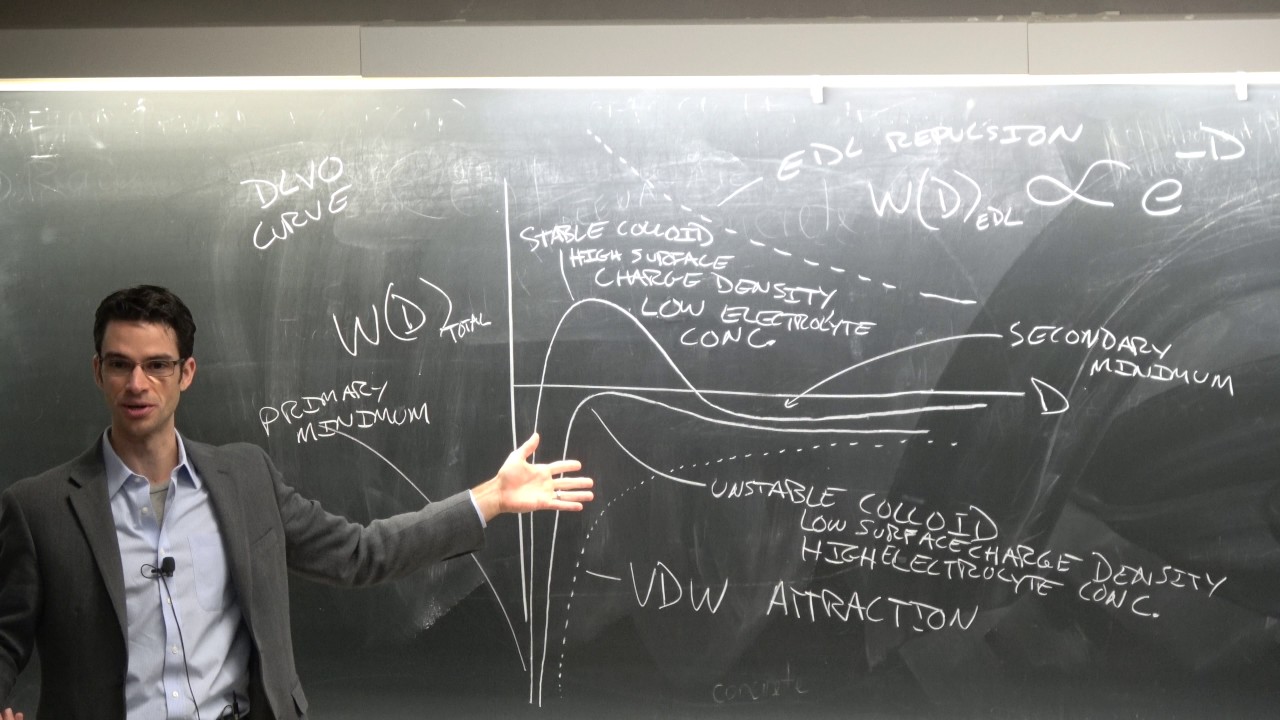 EDL REPULSION
W(D)EDL ∝ e^-D
DLVO
CURVE
STABLE COLLOID
HIGH SURFACE
CHARGE DENSITY,
LOW ELECTROLYTE
CONC.
W(D)TOTAL
SECONDARY
MINIMUM
D
PRIMARY
MINIMUM
UNSTABLE COLLOID
LOW SURFACE CHARGE DENSITY
HIGH ELECTROLYTE CONC.
VDW ATTRACTION
concrete